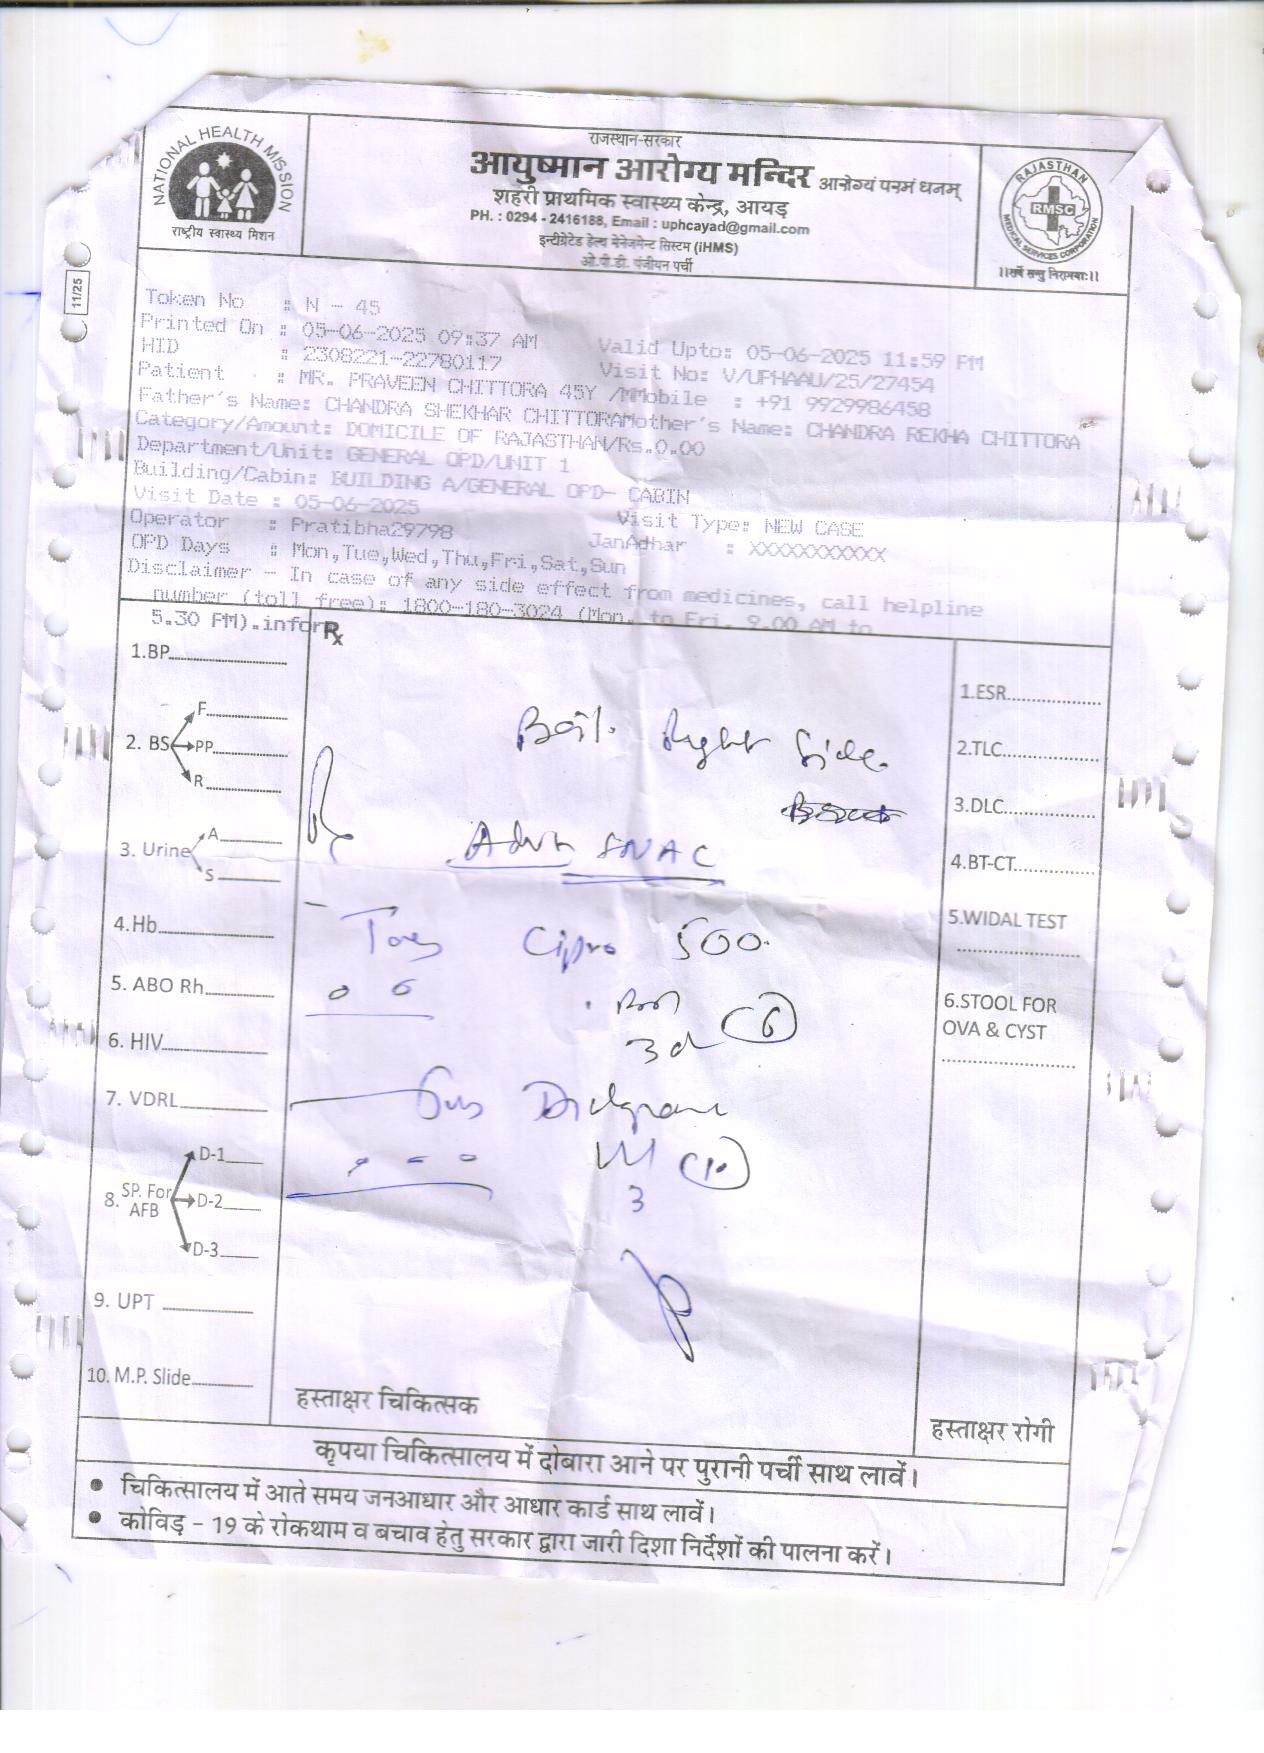 NATIONAL HEALTH MISSION
राष्ट्रीय स्वास्थ्य मिशन
राजस्थान-सरकार
आयुष्मान आरोग्य मन्दिर आरोग्यं परमं धनम्
शहरी प्राथमिक स्वास्थ्य केन्द्र, आयड़
PH. : 0294 - 2416188, Email : uphcayad@gmail.com
इन्टीग्रेटेड हेल्थ मेनेजमेन्ट सिस्टम (iHMS)
ओ.पी.डी. पंजीयन पर्ची
RAJASTHAN
RMSC
MEDICAL SERVICES CORPORATION
।।सर्वे सन्तु निरामयाः।।
11/25
Token No : N - 45
Printed On : 05-06-2025 09:37 AM Valid Upto: 05-06-2025 11:59 PM
HID : 2308221-22780117 Visit No: V/UPHAAU/25/27454
Patient : MR. PRAVEEN CHITTORA 45Y /MMobile : +91 9929986458
Father's Name: CHANDRA SHEKHAR CHITTORAMother's Name: CHANDRA REKHA CHITTORA
Category/Amount: DOMICILE OF RAJASTHAN/Rs.0.00
Department/Unit: GENERAL OPD/UNIT 1
Building/Cabin: BUILDING A/GENERAL OPD- CABIN
Visit Date : 05-06-2025 Visit Type: NEW CASE
Operator : Pratibha29798 JanAdhar : XXXXXXXXXXX
OPD Days : Mon,Tue,Wed,Thu,Fri,Sat,Sun
Disclaimer - In case of any side effect from medicines, call helpline
number (toll free): 1800-180-3024 (Mon. to Fri. 9.00 AM to
5.30 PM).infor
Rx
1.BP
2. BS F
PP
R
3. Urine A
S
4.Hb
5. ABO Rh
6. HIV
7. VDRL
8. SP. For AFB D-1
D-2
D-3
9. UPT
10. M.P. Slide
Boil. Right Side
Adv FNAC
Cipro 500
3d 6
3
1.ESR
2.TLC
3.DLC
4.BT-CT
5.WIDAL TEST
6.STOOL FOR
OVA & CYST
हस्ताक्षर चिकित्सक
हस्ताक्षर रोगी
कृपया चिकित्सालय में दोबारा आने पर पुरानी पर्ची साथ लावें।
• चिकित्सालय में आते समय जनआधार और आधार कार्ड साथ लावें।
• कोविड़ - 19 के रोकथाम व बचाव हेतु सरकार द्वारा जारी दिशा निर्देशों की पालना करें।